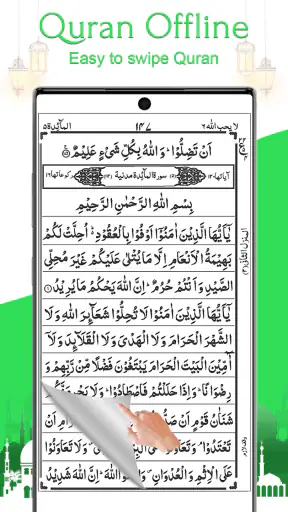 Quran Offline
Easy to swipe Quran
لا يحب الله ٦
١٤٧
المآئدة ٥
اَنْ تَضِلُّوْا ؕ وَاللّٰهُ بِكُلِّ شَیْءٍ عَلِیْمٌ
سورة المآئدة مدنية
بِسْمِ اللّٰهِ الرَّحْمٰنِ الرَّحِیْمِ
یٰۤاَیُّهَا الَّذِیْنَ اٰمَنُوْۤا اَوْفُوْا بِالْعُقُوْدِ ؕ اُحِلَّتْ لَكُمْ
بَهِیْمَةُ الْاَنْعَامِ اِلَّا مَا یُتْلٰی عَلَیْكُمْ غَیْرَ مُحِلِّی
الصَّیْدِ وَ اَنْتُمْ حُرُمٌ ؕ اِنَّ اللّٰهَ یَحْكُمُ مَا یُرِیْدُ
یٰۤاَیُّهَا الَّذِیْنَ اٰمَنُوْا لَا تُحِلُّوْا شَعَآىِٕرَ اللّٰهِ وَ لَا
الشَّهْرَ الْحَرَامَ وَ لَا الْهَدْیَ وَ لَا الْقَلَآىِٕدَ وَ لَاۤ
آٰمِّیْنَ الْبَیْتَ الْحَرَامَ یَبْتَغُوْنَ فَضْلًا مِّنْ رَّبِّهِمْ وَ
رِضْوَانًا ؕ وَ اِذَا حَلَلْتُمْ فَاصْطَادُوْا ؕ وَ لَا یَجْرِمَنَّكُمْ
شَنَاٰنُ قَوْمٍ اَنْ اَنْ
تَعْتَدُوْا ۘ وَ تَعَاوَنُوْا وَ لَا تَعَاوَنُوْا
عَلَی الْاِثْمِ وَ الْعُدْوَانِ ۪ وَ اللّٰهَ ؕ اِنَّ اللّٰهَ شَدِیْدُ